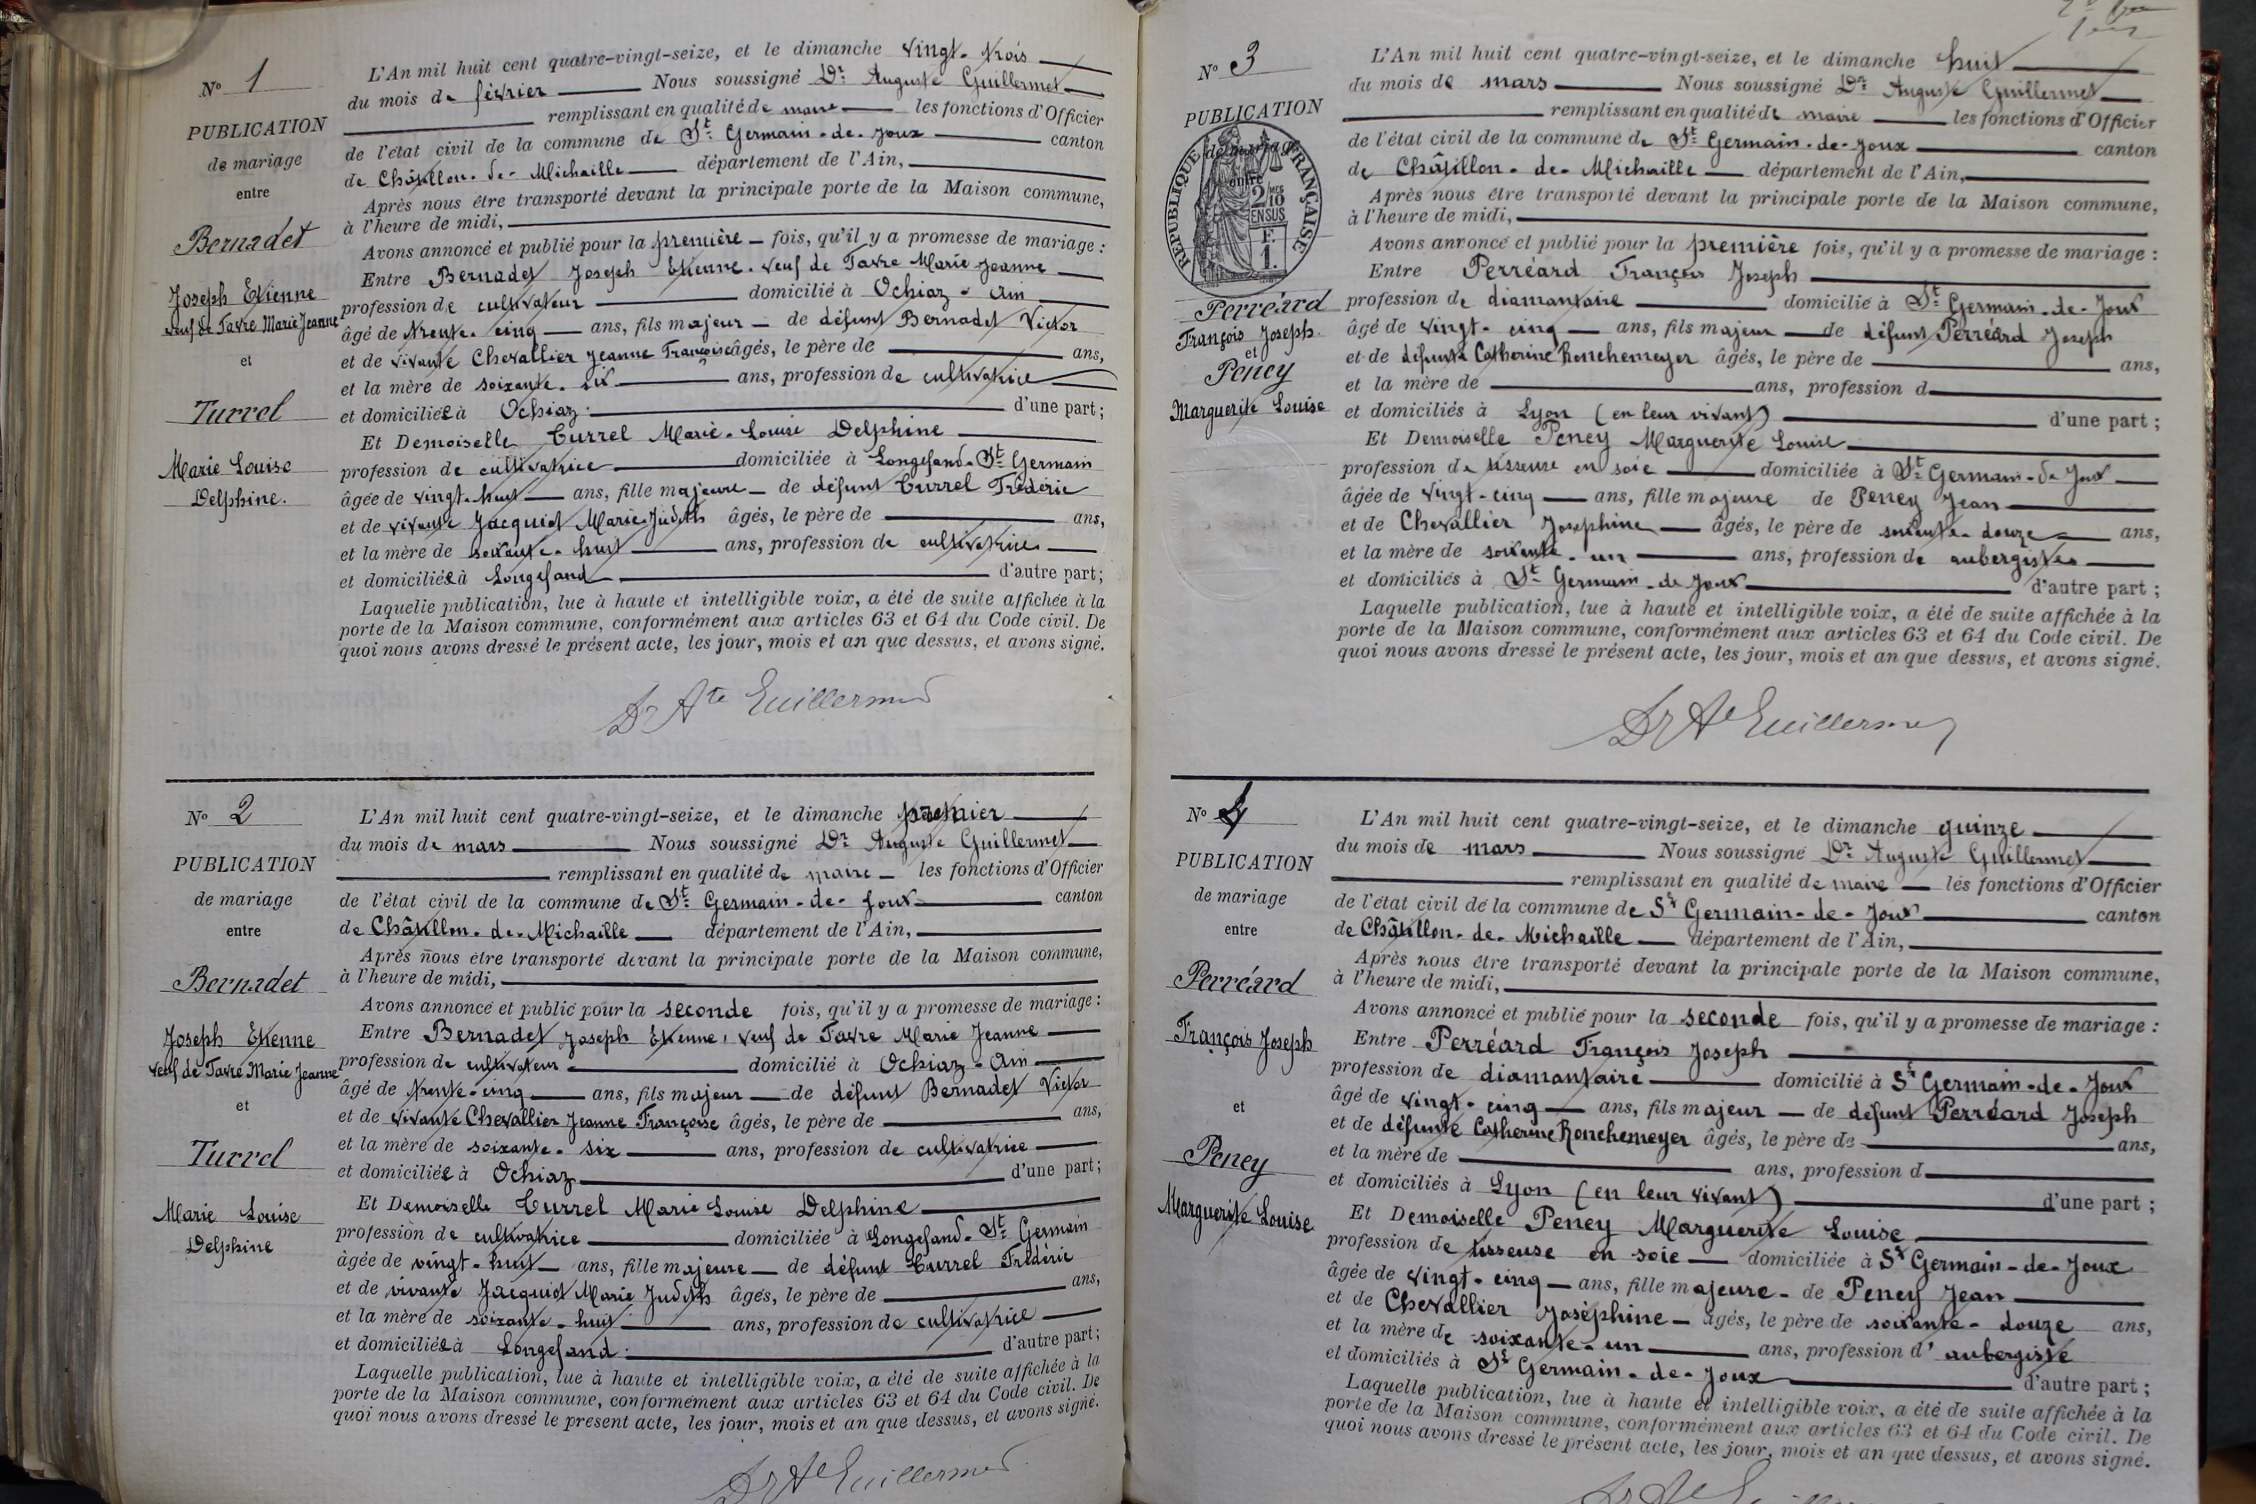 N° 1
PUBLICATION
de mariage
entre
Bernadet
Joseph Etienne
veuf de Favre Marie Jeanne
et
Turrel
Marie Louise
Delphine.
L'An mil huit cent quatre-vingt-seize, et le dimanche vingt-trois
du mois de février Nous soussigné Dr Auguste Guillermet
remplissant en qualité de maire les fonctions d'Officier
de l'état civil de la commune de St Germain-de-Joux canton
de Châtillon-de-Michaille département de l'Ain,
Après nous être transporté devant la principale porte de la Maison commune,
à l'heure de midi,
Avons annoncé et publié pour la première fois, qu'il y a promesse de mariage :
Entre Bernadet Joseph Etienne. veuf de Favre Marie Jeanne
profession de cultivateur domicilié à Ochiaz - Ain
âgé de trente-cinq ans, fils majeur de défunt Bernadet Victor
et de vivante Chevallier Jeanne Françoise âgés, le père de ans,
et la mère de soixante-six ans, profession de cultivatrice
et domiciliée à Ochiaz. d'une part ;
Et Demoiselle Turrel Marie-Louise Delphine
profession de cultivatrice domiciliée à Longefand-St Germain
âgée de vingt-huit ans, fille majeure de défunt Turrel Frédéric
et de vivante Jacquiot Marie Judith âgés, le père de ans,
et la mère de soixante-huit ans, profession de cultivatrice
et domiciliée à Longefand d'autre part ;
Laquelle publication, lue à haute et intelligible voix, a été de suite affichée à la
porte de la Maison commune, conformément aux articles 63 et 64 du Code civil. De
quoi nous avons dressé le présent acte, les jour, mois et an que dessus, et avons signé.
Dr Ate Guillermet
N° 2
PUBLICATION
de mariage
entre
Bernadet
Joseph Etienne
veuf de Favre Marie Jeanne
et
Turrel
Marie Louise
Delphine
L'An mil huit cent quatre-vingt-seize, et le dimanche premier
du mois de mars Nous soussigné Dr Auguste Guillermet
remplissant en qualité de maire les fonctions d'Officier
de l'état civil de la commune de St Germain-de-Joux canton
de Châtillon-de-Michaille département de l'Ain,
Après nous être transporté devant la principale porte de la Maison commune,
à l'heure de midi,
Avons annoncé et publié pour la seconde fois, qu'il y a promesse de mariage :
Entre Bernadet Joseph Etienne, veuf de Favre Marie Jeanne
profession de cultivateur domicilié à Ochiaz - Ain
âgé de trente-cinq ans, fils majeur de défunt Bernadet Victor
et de vivante Chevallier Jeanne Françoise âgés, le père de ans,
et la mère de soixante-six ans, profession de cultivatrice
et domiciliée à Ochiaz d'une part ;
Et Demoiselle Turrel Marie Louise Delphine
profession de cultivatrice domiciliée à Longefand-St Germain
âgée de vingt-huit ans, fille majeure de défunt Turrel Frédéric
et de vivante Jacquiot Marie Judith âgés, le père de ans,
et la mère de soixante-huit ans, profession de cultivatrice
et domiciliée à Longefand. d'autre part ;
Laquelle publication, lue à haute et intelligible voix, a été de suite affichée à la
porte de la Maison commune, conformément aux articles 63 et 64 du Code civil. De
quoi nous avons dressé le présent acte, les jour, mois et an que dessus, et avons signé.
Dr Ate Guillermet
N° 3
PUBLICATION
de mariage
entre
RÉPUBLIQUE FRANÇAISE
2/10 EN SUS
Perréard
François Joseph
et
Peney
Marguerite Louise
L'An mil huit cent quatre-vingt-seize, et le dimanche huit
du mois de mars Nous soussigné Dr Auguste Guillermet
remplissant en qualité de maire les fonctions d'Officier
de l'état civil de la commune de St Germain-de-Joux canton
de Châtillon-de-Michaille département de l'Ain,
Après nous être transporté devant la principale porte de la Maison commune,
à l'heure de midi,
Avons annoncé et publié pour la première fois, qu'il y a promesse de mariage :
Entre Perréard François Joseph
profession de diamantaire domicilié à St Germain-de-Joux
âgé de vingt-cinq ans, fils majeur de défunt Perréard Joseph
et de défunte Catherine Ronchemeyer âgés, le père de ans,
et la mère de ans, profession d
et domiciliés à Lyon (en leur vivant) d'une part ;
Et Demoiselle Peney Marguerite Louise
profession de tisseuse en soie domiciliée à St Germain-de-Joux
âgée de vingt-cinq ans, fille majeure de Peney Jean
et de Chevallier Josephine âgés, le père de soixante-douze ans,
et la mère de soixante-un ans, profession de aubergistes
et domiciliés à St Germain-de-Joux d'autre part ;
Laquelle publication, lue à haute et intelligible voix, a été de suite affichée à la
porte de la Maison commune, conformément aux articles 63 et 64 du Code civil. De
quoi nous avons dressé le présent acte, les jour, mois et an que dessus, et avons signé.
Dr Ate Guillermet
N° 4
PUBLICATION
de mariage
entre
Perréard
François Joseph
et
Peney
Marguerite Louise
L'An mil huit cent quatre-vingt-seize, et le dimanche quinze
du mois de mars Nous soussigné Dr Auguste Guillermet
remplissant en qualité de maire les fonctions d'Officier
de l'état civil de la commune de St Germain-de-Joux canton
de Châtillon-de-Michaille département de l'Ain,
Après nous être transporté devant la principale porte de la Maison commune,
à l'heure de midi,
Avons annoncé et publié pour la seconde fois, qu'il y a promesse de mariage :
Entre Perréard François Joseph
profession de diamantaire domicilié à St Germain-de-Joux
âgé de vingt-cinq ans, fils majeur de défunt Perréard Joseph
et de défunte Catherine Ronchemeyer âgés, le père de ans,
et la mère de ans, profession d
et domiciliés à Lyon (en leur vivant) d'une part ;
Et Demoiselle Peney Marguerite Louise
profession de tisseuse en soie domiciliée à St Germain-de-Joux
âgée de vingt-cinq ans, fille majeure de Peney Jean
et de Chevallier Joséphine âgés, le père de soixante-douze ans,
et la mère de soixante-un ans, profession d' aubergiste
et domiciliés à St Germain-de-Joux d'autre part ;
Laquelle publication, lue à haute et intelligible voix, a été de suite affichée à la
porte de la Maison commune, conformément aux articles 63 et 64 du Code civil. De
quoi nous avons dressé le présent acte, les jour, mois et an que dessus, et avons signé.